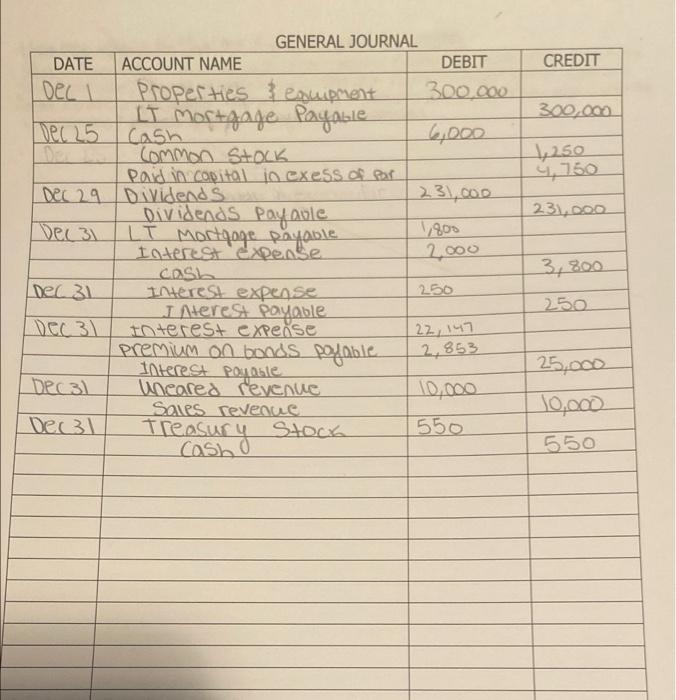 GENERAL JOURNAL
DATE ACCOUNT NAME DEBIT CREDIT
Dec 1 Properties & equipment 300,000
LT mortgage Payable 300,000
Dec 25 Cash 6,000
Common Stock 1,250
Paid in capital in exess of par 4,750
Dec 29 Dividends 231,000
Dividends Payable 231,000
Dec 31 LT Mortgage payable 1,800
Interest expense 2,000
cash 3,800
Dec 31 Interest expense 250
Interest Payable 250
Dec 31 interest expense 22,147
premium on bonds payable 2,853
Interest payable 25,000
Dec 31 Uneared revenue 10,000
Sales revenue 10,000
Dec 31 Treasury Stock 550
Cash 550